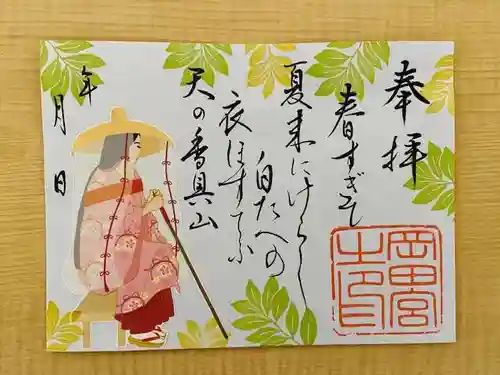 奉拝
春すぎて
夏来にけらし
白たへの
衣ほすてふ
天の香具山
年
月
日
岡田宮
之印